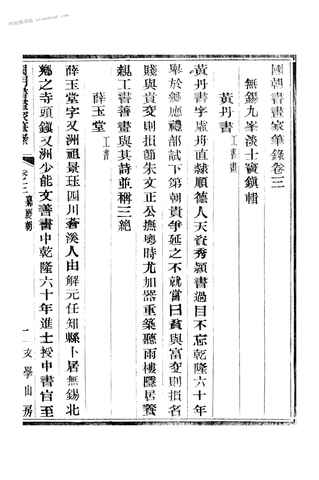 國朝書畫家筆錄卷三
無錫九峯淡士竇鎮輯
黃丹書 工書畫
黃丹書字虛舟直隸順德人天資秀穎書過目不忘乾隆六十年
舉於鄉應禮部試下第朝貴爭延之不就嘗曰貧與富交則損名
賤與貴交則損節朱文正公撫粵時尤加器重築聽雨樓隱居養
親工書善畫與其詩並稱三絕
薛玉堂 工書
薛玉堂字又洲祖景珏四川蒼溪人由解元任知縣卜居無錫北
鄉之寺頭鎮又洲少能文善書中乾隆六十年進士授中書官至
卷三 嘉慶朝
一
文學山房